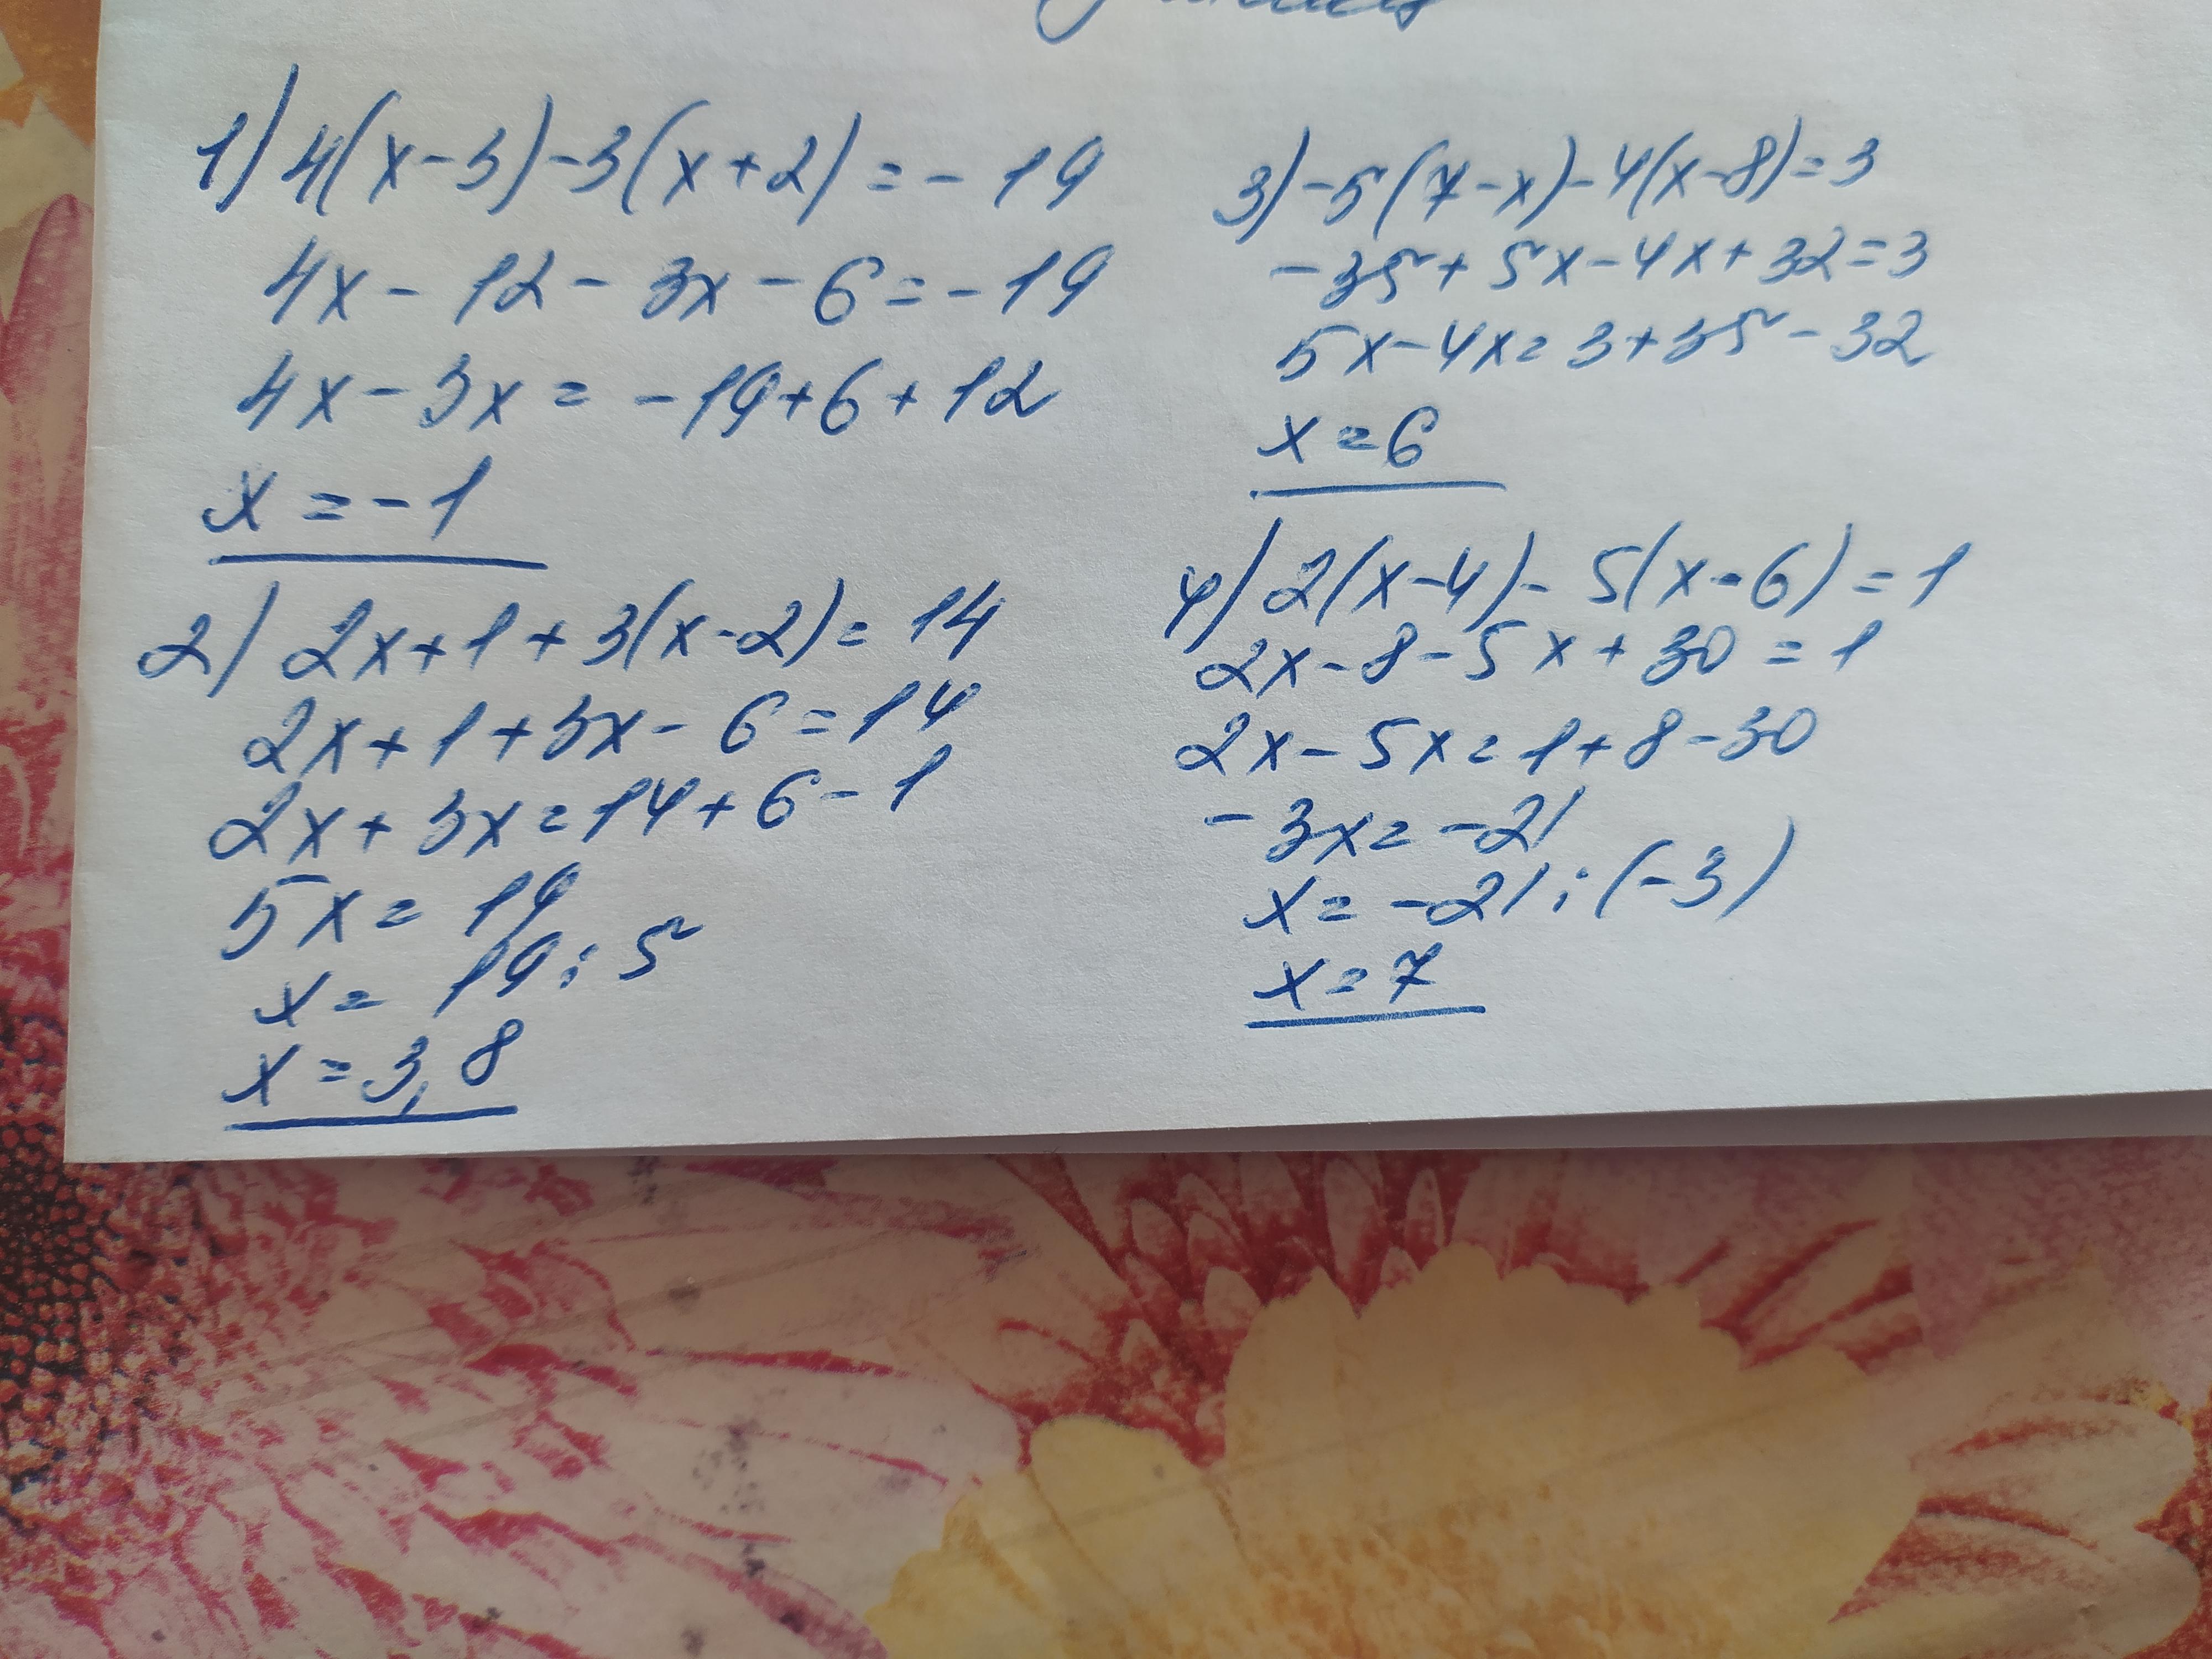 1) 4(x-3)-3(x+2)=-19
4x-12-3x-6=-19
4x-3x=-19+6+12
x=-1
2) 2x+1+3(x-2)=14
2x+1+3x-6=14
2x+3x=14+6-1
5x=19
x=19:5
x=3,8
3) -5(7-x)-4(x-8)=3
-35+5x-4x+32=3
5x-4x=3+35-32
x=6
4) 2(x-4)-5(x-6)=1
2x-8-5x+30=1
2x-5x=1+8-30
-3x=-21
x=-21:(-3)
x=7